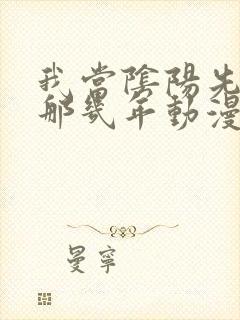 我當陰陽先
那幾年動漫
曼寧